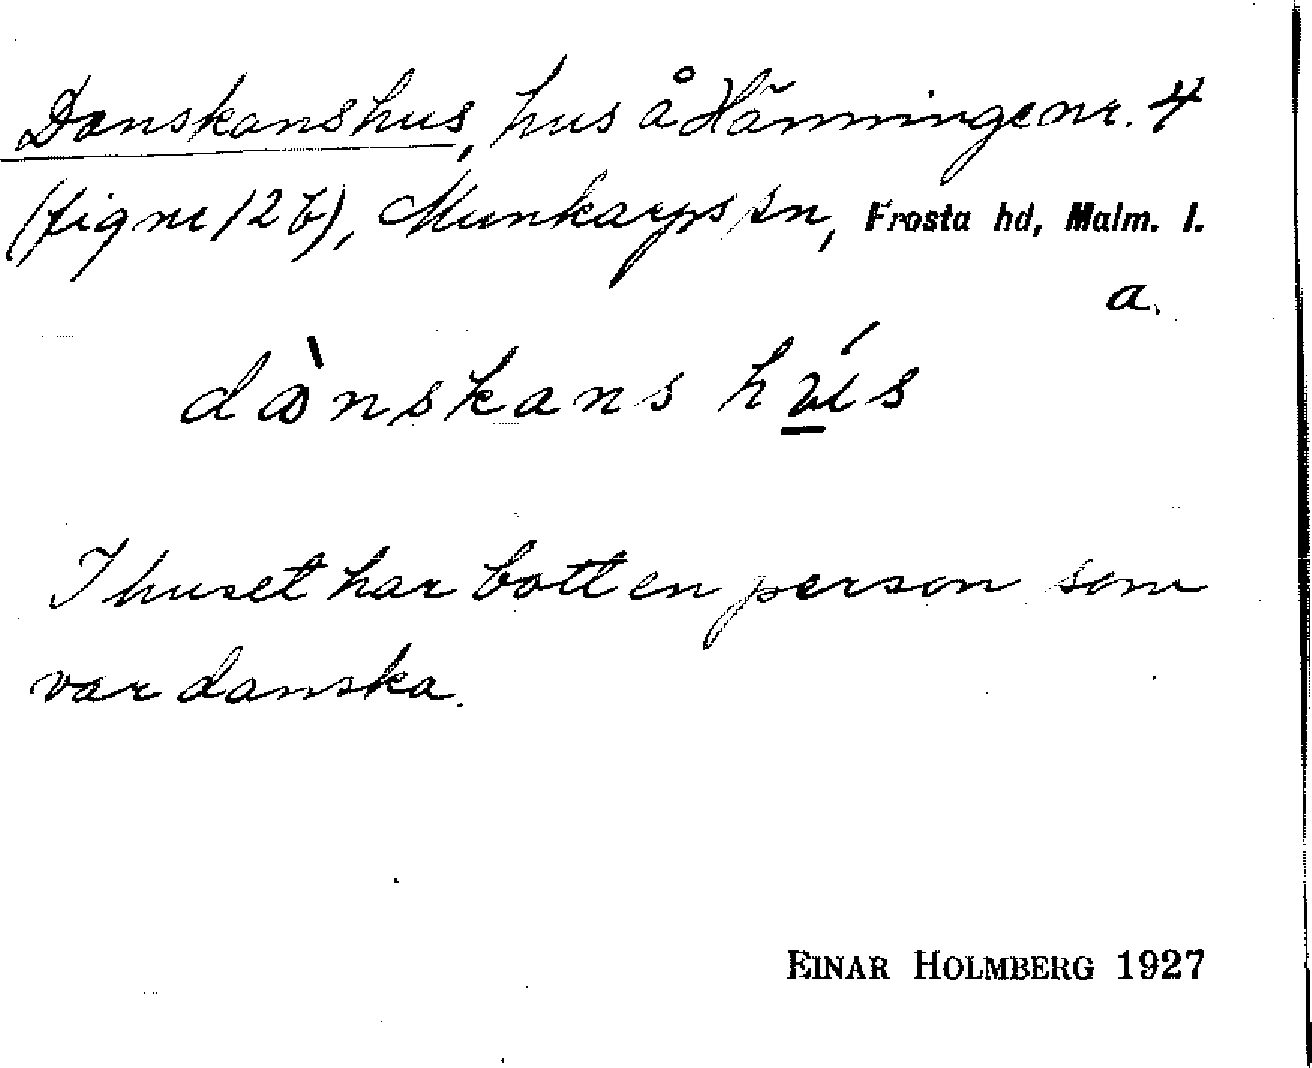 Danskanshus, hus å Hänninge nr. 4
(fig nr 12b), Munkarps sn, Frosta hd, Malm. l.
a.
dànskans húis
I huset har bott en person som
var danska.
EINAR HOLMBERG 1927